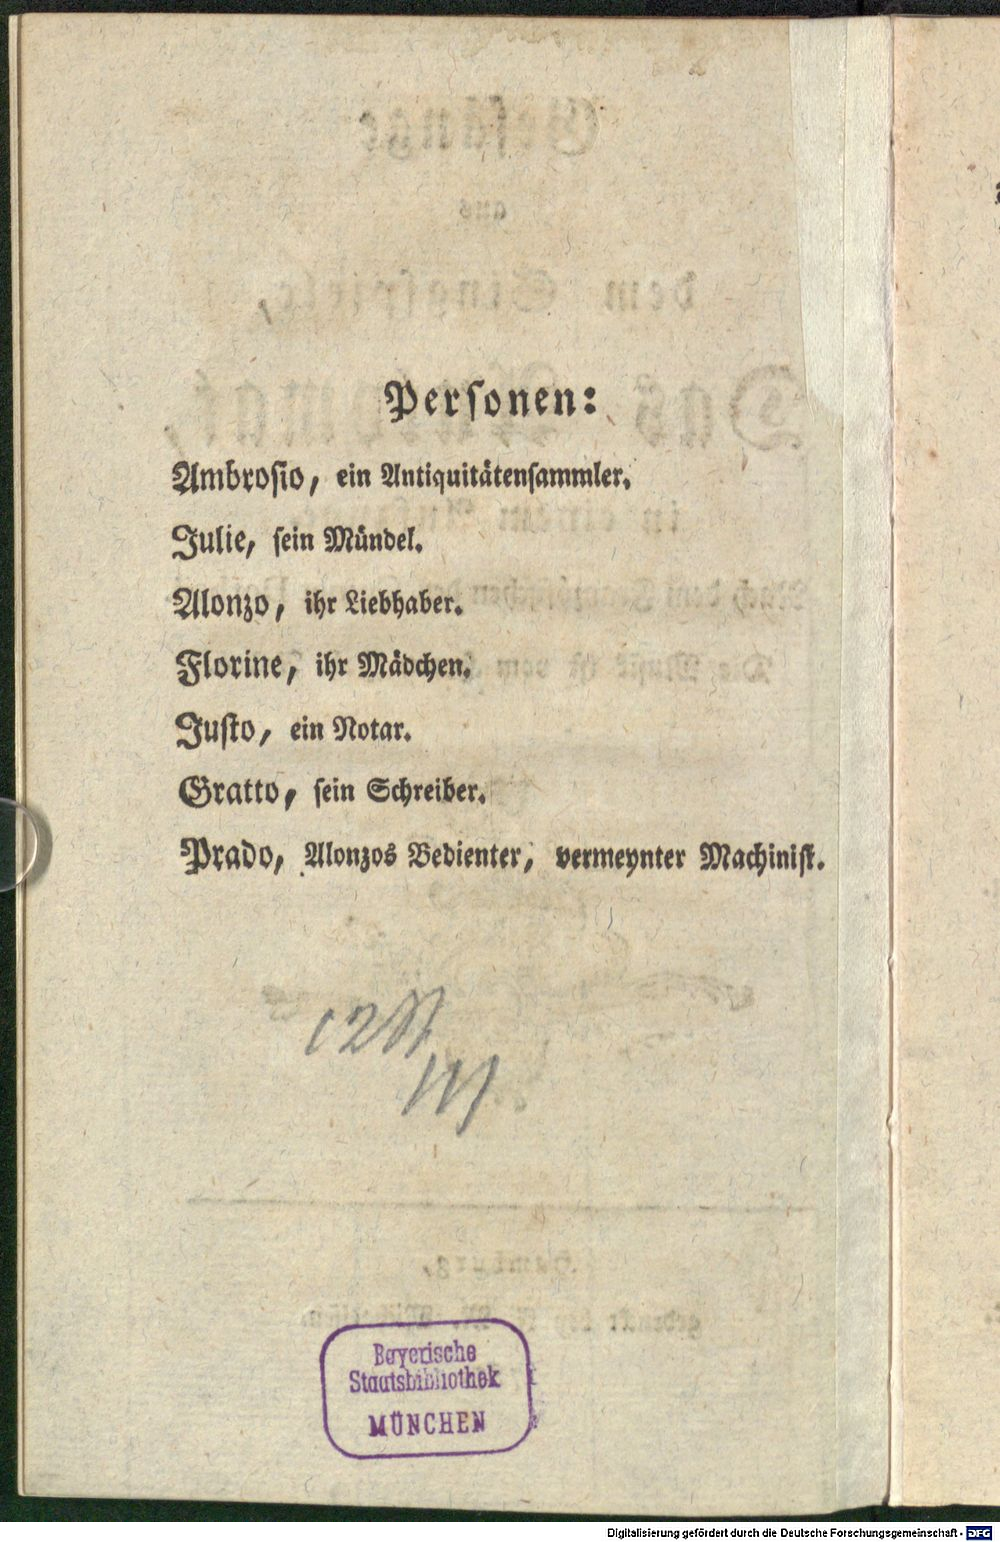 Personen:
Ambrosio, ein Antiquitätensammler.
Julie, sein Mündel.
Alonzo, ihr Liebhaber.
Florine, ihr Mädchen.
Justo, ein Notar.
Gratto, sein Schreiber.
Prado, Alonzos Bedienter, vermeynter Machinist.
Bayerische
Staatsbibliothek
MÜNCHEN
Digitalisierung gefördert durch die Deutsche Forschungsgemeinschaft - DFG